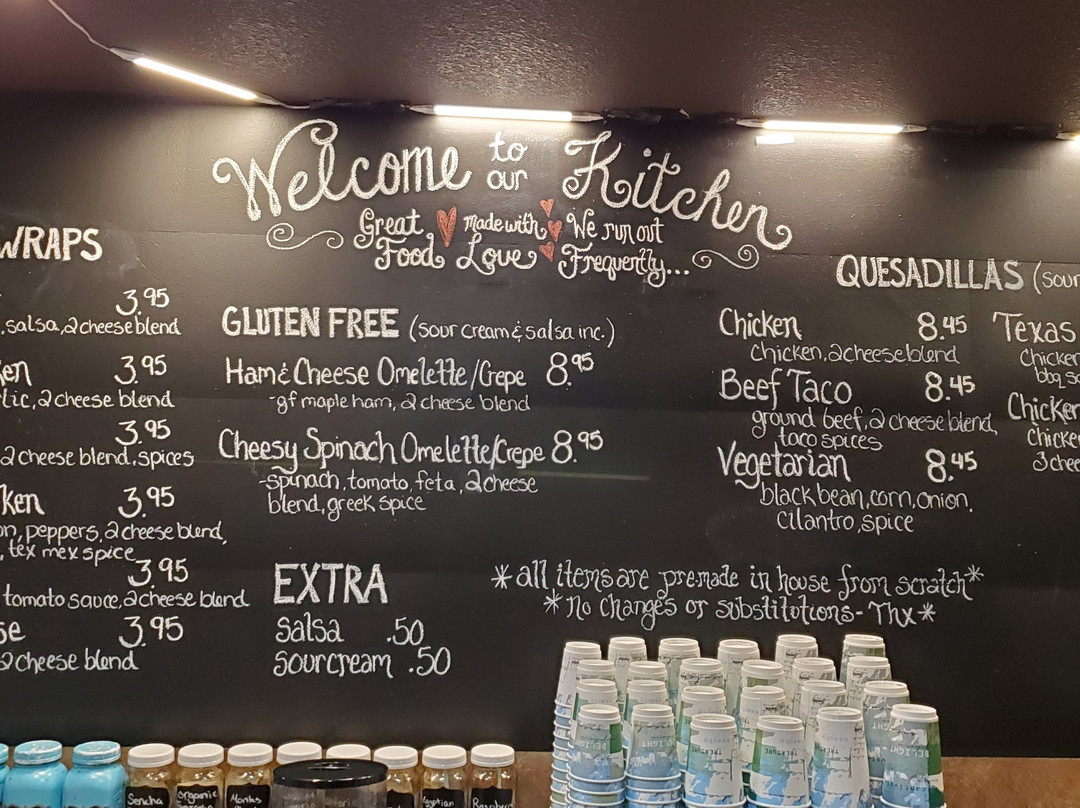 Welcome to our Kitchen
Great Food made with Love We run out Frequently...
WRAPS
3.95
, salsa, 2 cheese blend
3.95
2 cheese blend
3.95
2 cheese blend, spices
3.95
peppers, 2 cheese blend,
, tex mex spice
3.95
tomato sauce, 2 cheese blend
3.95
2 cheese blend
GLUTEN FREE (sour cream & salsa inc.)
Ham & Cheese Omelette/Crepe 8.95
-gf maple ham, 2 cheese blend
Cheesy Spinach Omelette/Crepe 8.95
-spinach, tomato, feta, 2 cheese
blend, greek spice
EXTRA
Salsa .50
sourcream .50
QUESADILLAS (sour
Chicken 8.45
Chicken, 2 cheese blend
Beef Taco 8.45
ground beef, 2 cheese blend,
taco spices
Vegetarian 8.45
black bean, corn, onion,
cilantro, spice
Texas
Chicken
bbq
Chicken
chicken
3 chee
*all items are premade in house from scratch*
*no changes or substitutions - Thx*
Sencha
Organic
Monks
Egyptian
Raspberry